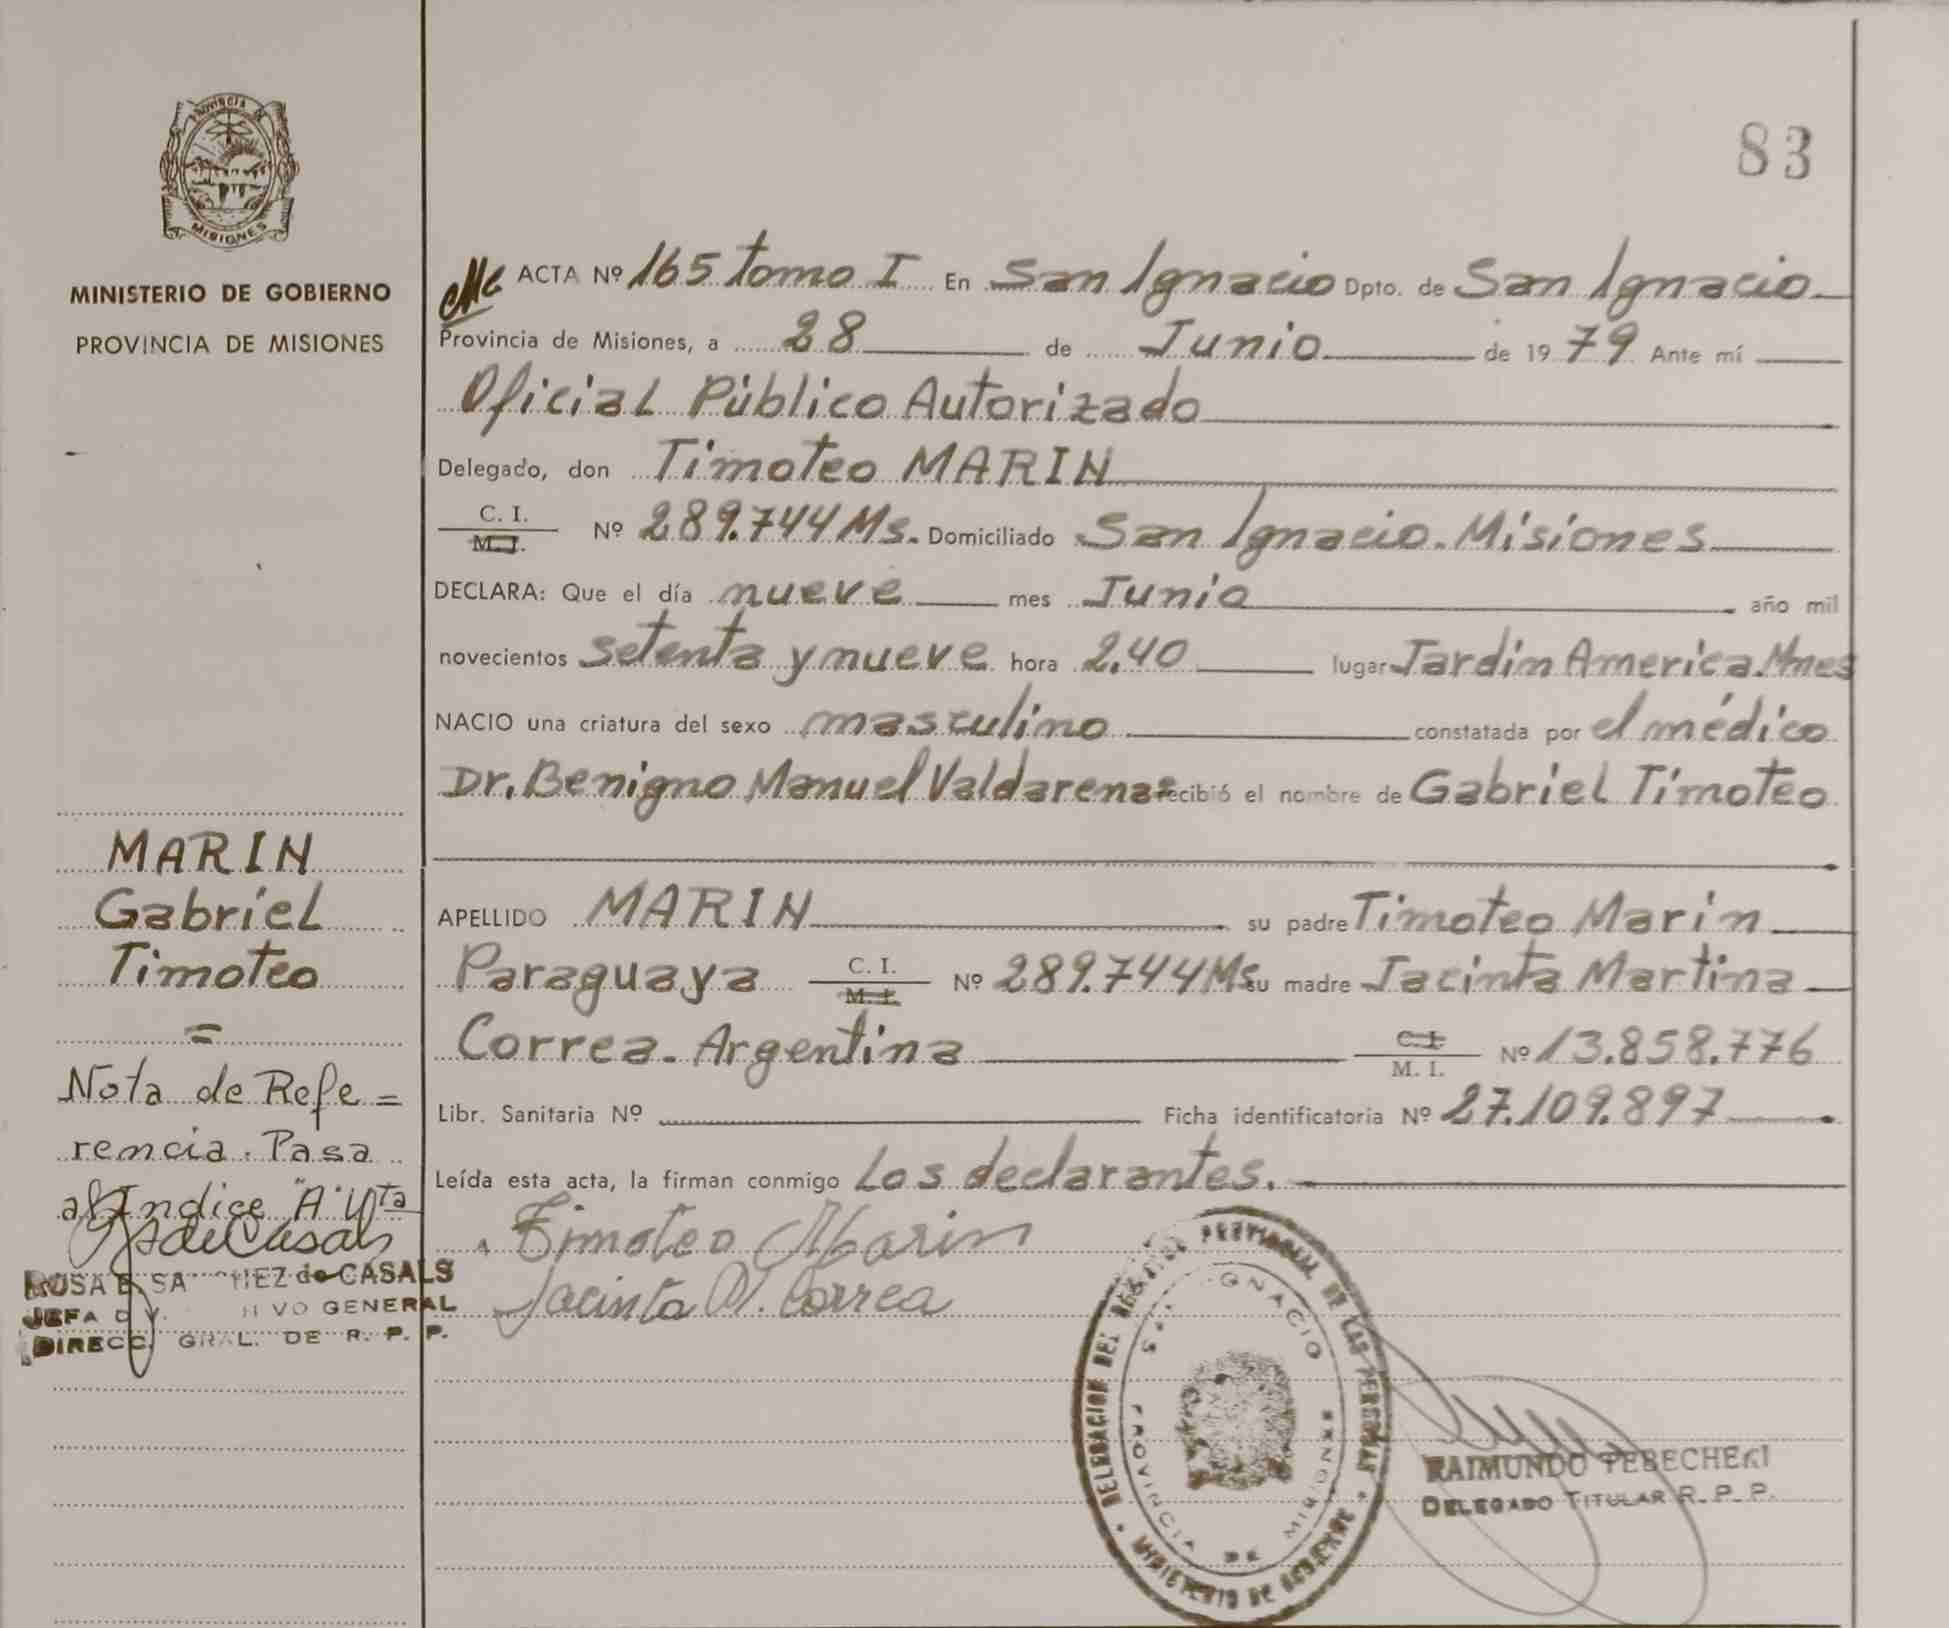 PROVINCIA DE
MISIONES
MINISTERIO DE GOBIERNO
PROVINCIA DE MISIONES
83
ACTA Nº 165 tomo I En San Ignacio Dpto. de San Ignacio
Provincia de Misiones, a 28 de Junio de 1979 Ante mí
Oficial Público Autorizado
Delegado, don Timoteo MARIN
C. I.
M. I. Nº 289.744 Ms. Domiciliado San Ignacio. Misiones
DECLARA: Que el día nueve mes Junio año mil
novecientos setenta y nueve hora 2,40 lugar Jardin America. Mnes
NACIO una criatura del sexo masculino constatada por el médico
Dr. Benigno Manuel Valdarenas recibió el nombre de Gabriel Timoteo
APELLIDO MARIN su padre Timoteo Marin
Paraguaya C. I.
M. I. Nº 289.744 Ms su madre Jacinta Martina
Correa. Argentina C. I.
M. I. Nº 13.858.776
Libr. Sanitaria Nº Ficha identificatoria Nº 27.109.897
Leída esta acta, la firman conmigo Los declarantes.
Timoteo Marin
Jacinta M. Correa
MARIN
Gabriel
Timoteo
=
Nota de Refe =
rencia. Pasa
al Indice "A" Vta
R S de Casals
ROSA de CASALS
JEFA GENERAL
DIRECC. GRAL. DE R. P. P.
DELEGACION DEL REGISTRO PROVINCIAL DE LAS PERSONAS
MINISTERIO DE GOBIERNO
IGNACIO
PROVINCIA DE MISIONES
RAIMUNDO
DELEGADO TITULAR R. P. P.